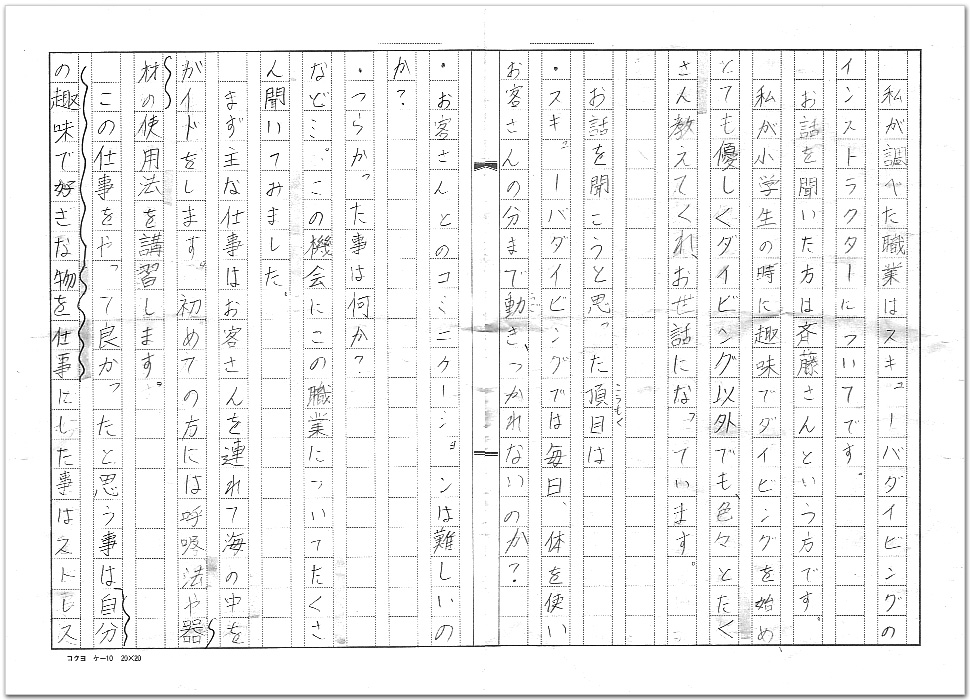 私が調べた職業はスキューバダイビングの
インストラクターについてです。
お話を聞いた方は斉藤さんという方です。
私が小学生の時に趣味でダイビングを始め
とても優しくダイビング以外でも、色々とたく
さん教えてくれ、お世話になっています。
お話を聞こうと思った頂目は
こうもく
・スキューバダイビングでは毎日、体を使い
お客さんの分まで動き、つかれないのか?
・お客さんとのコミニケーションは難しいの
か?
・つらかった事は何か?
など…。この機会にこの職業についてたくさ
ん聞いてみました。
まず主な仕事はお客さんを連れて海の中を
ガイドをします。初めての方には呼吸法や器
材の使用法を講習します。
この仕事をやって良かったと思う事は自分
の趣味で好きな物を仕事にした事はストレス
コクヨ ケー10 20×20